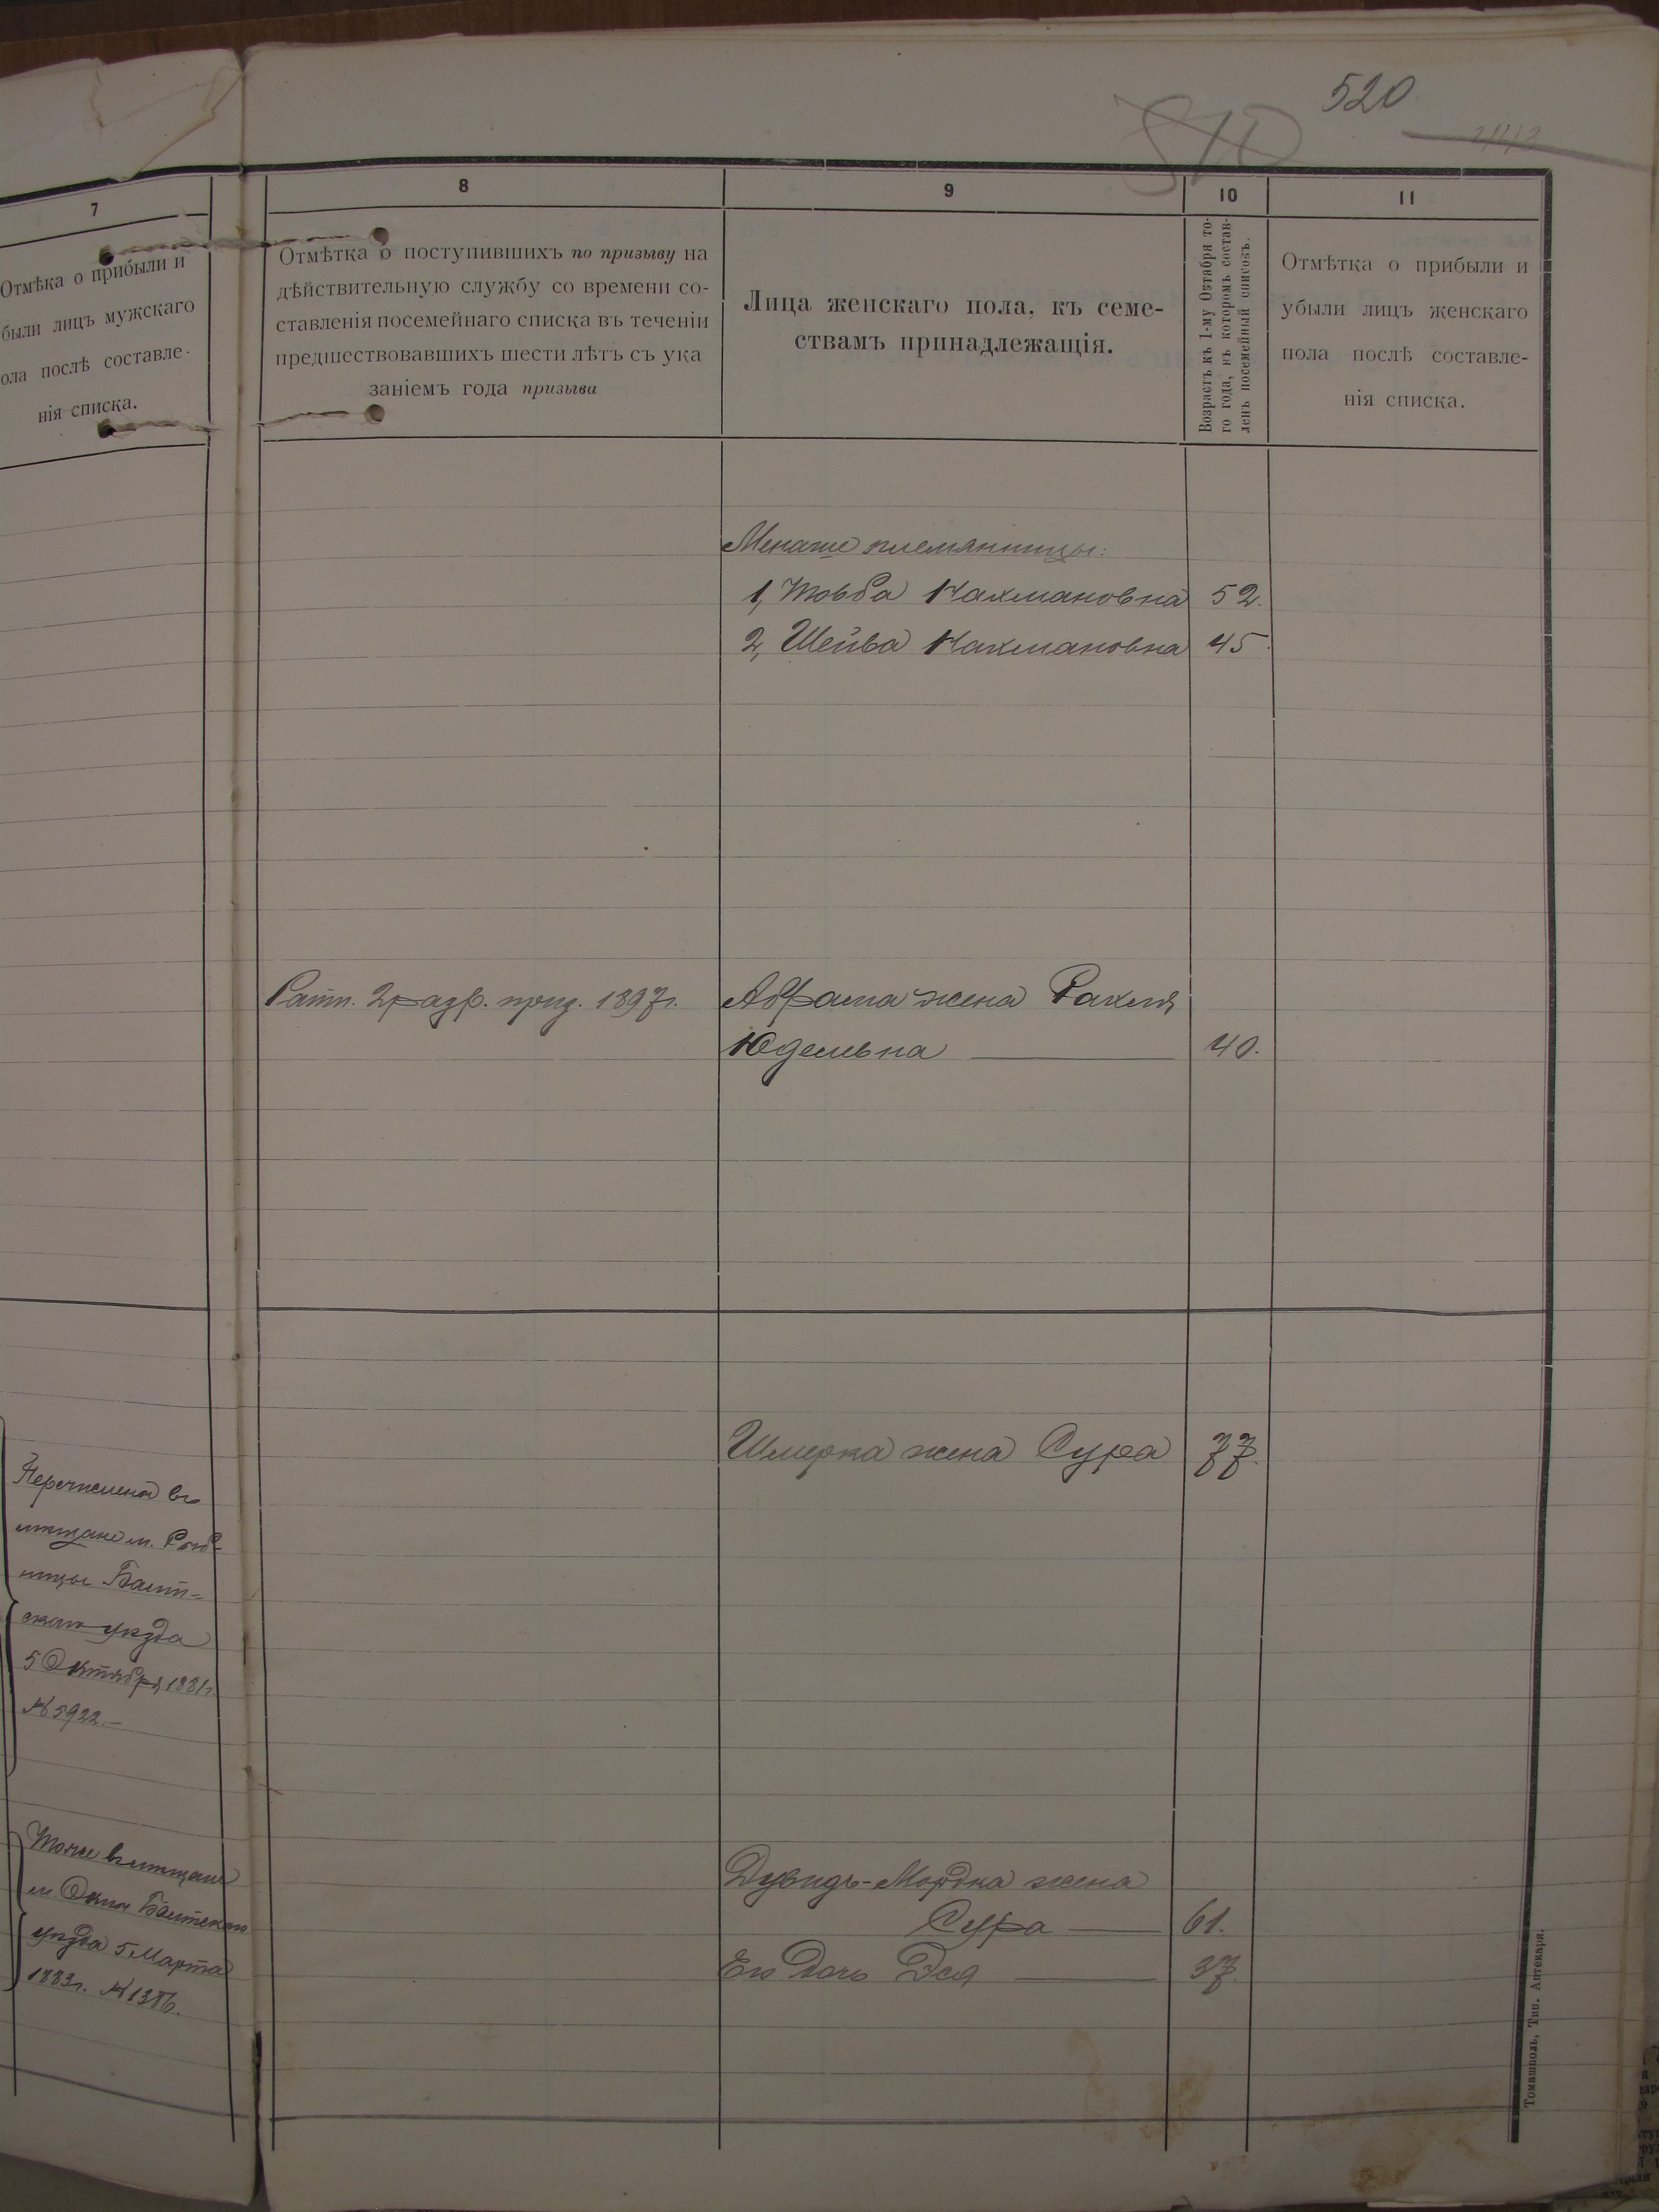 520
510
7
Отмѣка о прибыли и
были лицъ мужскаго
ола послѣ составле-
нія списка.
8
Отмѣтка о поступившихъ по призыву на
дѣйствительную службу со времени со-
ставленія посемейнаго списка въ теченіи
предшествовавшихъ шести лѣтъ съ ука
заніемъ года призыва
9
Лица женскаго пола, къ семе-
ствамъ принадлежащія.
10
Возрастъ къ 1-му Октября то-
го года, въ которомъ состав-
ленъ посемейный списокъ.
11
Отмѣтка о прибыли и
убыли лицъ женскаго
пола послѣ составле-
нія списка.
Менаше племянницы:
1, Товба Нахмановна 52.
2, Шейва Нахмановна 45
Ратн. 2 разр. приз. 1897 г. Абрама жена Рахля
Юдельвна 40.
Шмерка жена Сура 77.
Перечислена въ
мѣщане м. Рыб-
ницы Балт-
скаго уѣзда
5 Октября 1881 г.
№ 5922.
Тоже въ мѣщане
м. Окны Балтскаго
уѣзда 5 Марта
1883 г. № 1386.
Дувидъ-Мордка жена
Сура 61.
Его дочь Эся 37.
Томашполь, Тип. Аптекаря.